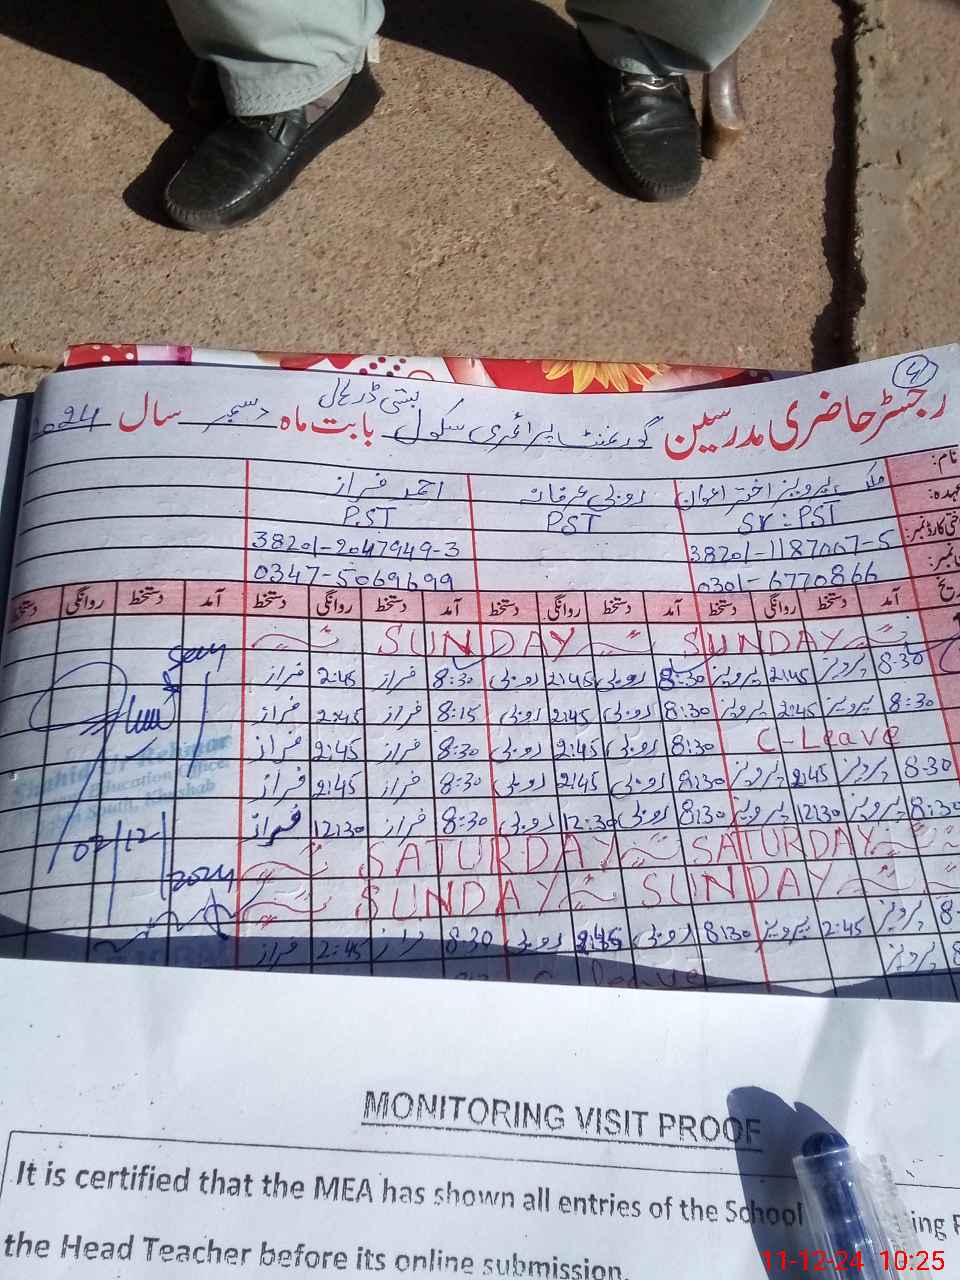 رجسٹر حاضری مدرسین گورنمنٹ پرائمری سکول بابت ماہ دسمبر سال 2024
نام: ملک پرویز اختر اعوان روبی عرفانہ احمد فراز
عہدہ: Sr: PST PST P.ST
38201-1187067-5 38201-2047949-3
0301-6770866 0347-5069699
آمد دستخط روانگی دستخط آمد دستخط روانگی دستخط آمد دستخط روانگی دستخط آمد دستخط روانگی دستخط
SUNDAY SUNDAY
8:30 پرویز 2:45 پرویز 8:30 روبی 2:45 روبی 8:30 فراز 2:45 فراز
8:30 پرویز 2:45 پرویز 8:30 روبی 2:45 روبی 8:15 فراز 2:45 فراز
C-Leave 8:30 روبی 2:45 روبی 8:30 فراز 2:45 فراز
8:30 پرویز 2:45 پرویز 8:30 روبی 2:45 روبی 8:30 فراز 2:45 فراز
8:30 پرویز 12:30 پرویز 8:30 روبی 12:30 روبی 8:30 فراز 12:30 فراز
SATURDAY SATURDAY
SUNDAY SUNDAY
پرویز 2:45 پرویز 8:30 روبی 2:45 روبی 8:30 فراز 2:45 فراز
پرویز leave
Education Office
South, Khushab
2024
MONITORING VISIT PROOF
It is certified that the MEA has shown all entries of the School
the Head Teacher before its online submission.
11-12-24 10:25